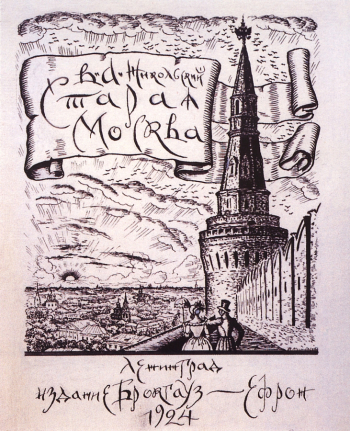 В.А. Никольский
Старая
Москва
Ленинград
издание Брокгауз—Ефрон
1924